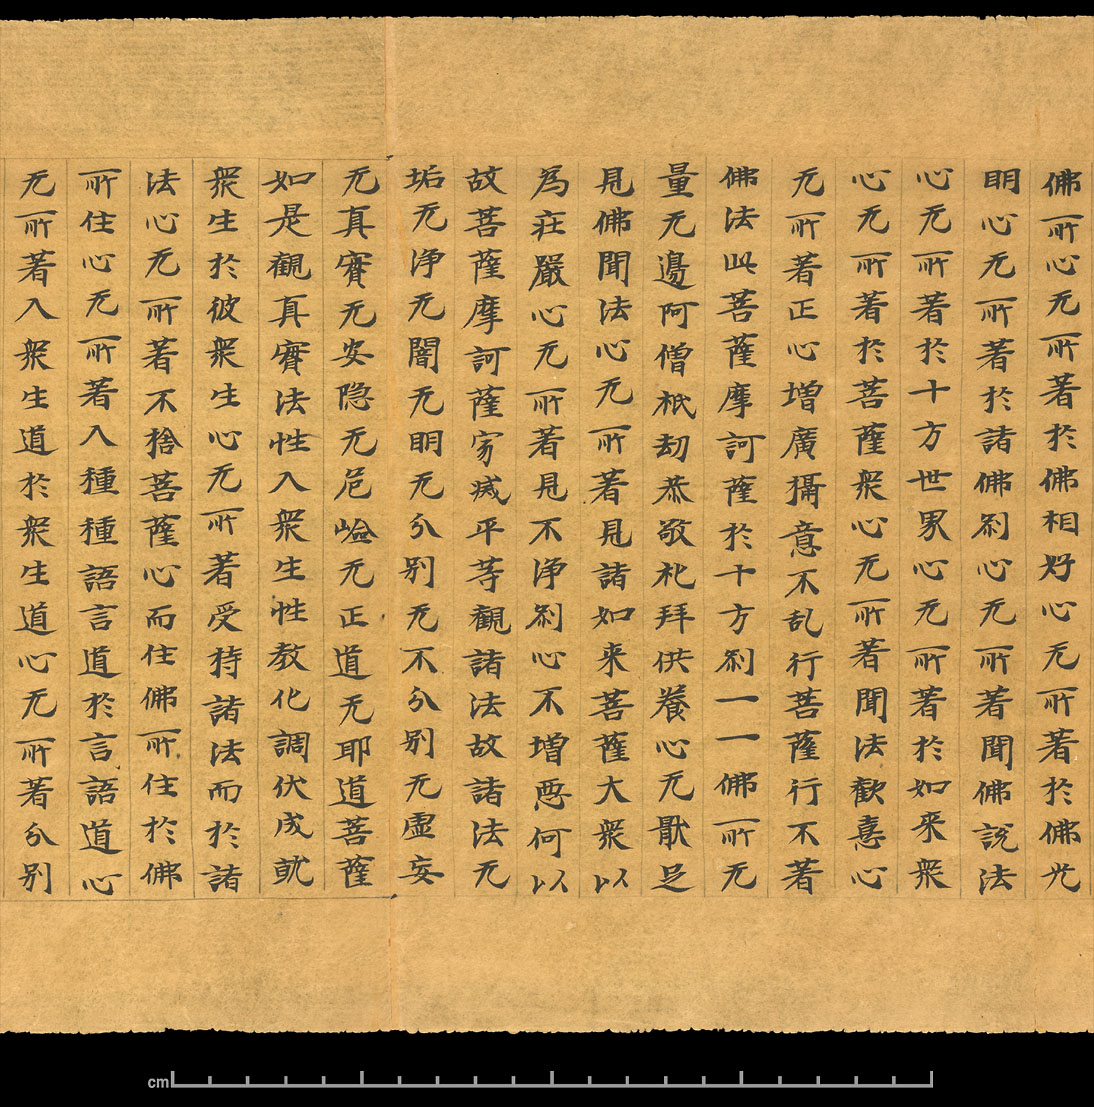 佛所心无所著於佛相好心无所著於佛光
明心无所著於諸佛刹心无所著聞佛説法
心无所著於十方世界心无所著於如来衆
心无所著於菩薩衆心无所著聞法歡憙心
无所著正心增廣攝意不乱行菩薩行不著
佛法此菩薩摩訶薩於十方刹一一佛所无
量无邊阿僧祇劫恭敬礼拜供養心无猒足
見佛聞法心无所著見諸如来菩薩大衆以
為莊嚴心无所著見不淨刹心不增惡何以
故菩薩摩訶薩寂滅平等觀諸法故諸法无
垢无淨无闇无明无分別无不分別无虛妄
无真實无安隱无危嶮无正道无耶道菩薩
如是觀真實法性入衆生性教化調伏成就
衆生於彼衆生心无所著受持諸法而於諸
法心无所著不捨菩薩心而住佛所住於佛
所住心无所著入種種語言道於言語道心
无所著入衆生道於衆生道心无所著分別
cm